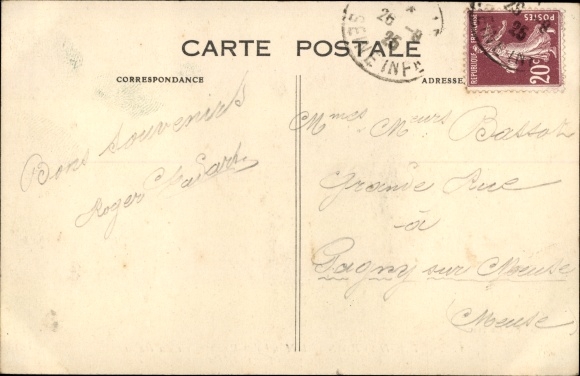 CARTE POSTALE
CORRESPONDANCE
Bons souvenirs
Roger
ADRESSE
SEINE INFRE
26 -8
25
REPUBLIQUE FRANÇAISE
POSTES
20c
Mmes Meurs
Grande Rue
à
Pagny sur Meuse
Meuse